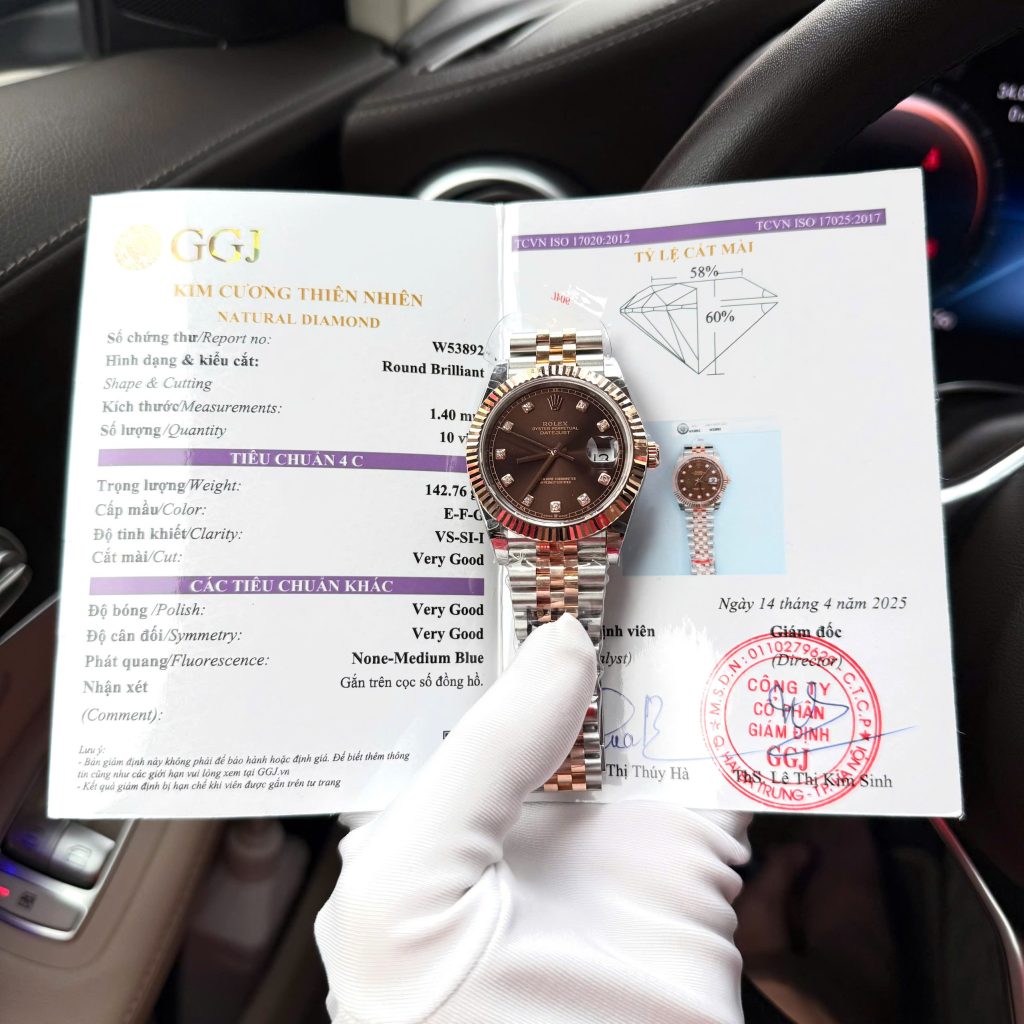 GGJ
KIM CƯƠNG THIÊN NHIÊN
NATURAL DIAMOND
Số chứng thư/Report no: W53892
Hình dạng & kiểu cắt: Round Brilliant
Shape & Cutting
Kích thước/Measurements: 1.40
Số lượng/Quantity 10
TIÊU CHUẨN 4 C
Trọng lượng/Weight: 142.76
Cấp mầu/Color: E-F-G
Độ tinh khiết/Clarity: VS-SI-I
Cắt mài/Cut: Very Good
CÁC TIÊU CHUẨN KHÁC
Độ bóng /Polish: Very Good
Độ cân đối/Symmetry: Very Good
Phát quang/Fluorescence: None-Medium Blue
Nhận xét Gắn trên cọc số đồng hồ.
(Comment):
Lưu ý:
- Bản giám định này không phải để bảo hành hoặc định giá. Để biết thêm thông
tin cũng như các giới hạn vui lòng xem tại GGJ.vn
- Kết quả giám định bị hạn chế khi viên được gắn trên tư trang
TCVN ISO 17020:2012 TCVN ISO 17025:2017
TỶ LỆ CẮT MÀI
58%
60%
904L
ROLEX
OYSTER PERPETUAL
DATEJUST
Ngày 14 tháng 4 năm 2025
định viên Giám đốc
(Director)
M.S.D.N: 0110279629-C.T.C.P
CÔNG TY
CỔ PHẦN
GIÁM ĐỊNH
GGJ
Q. HAI BÀ TRƯNG - T.P. HÀ NỘI
Thị Thúy Hà ThS. Lê Thị Kim Sinh